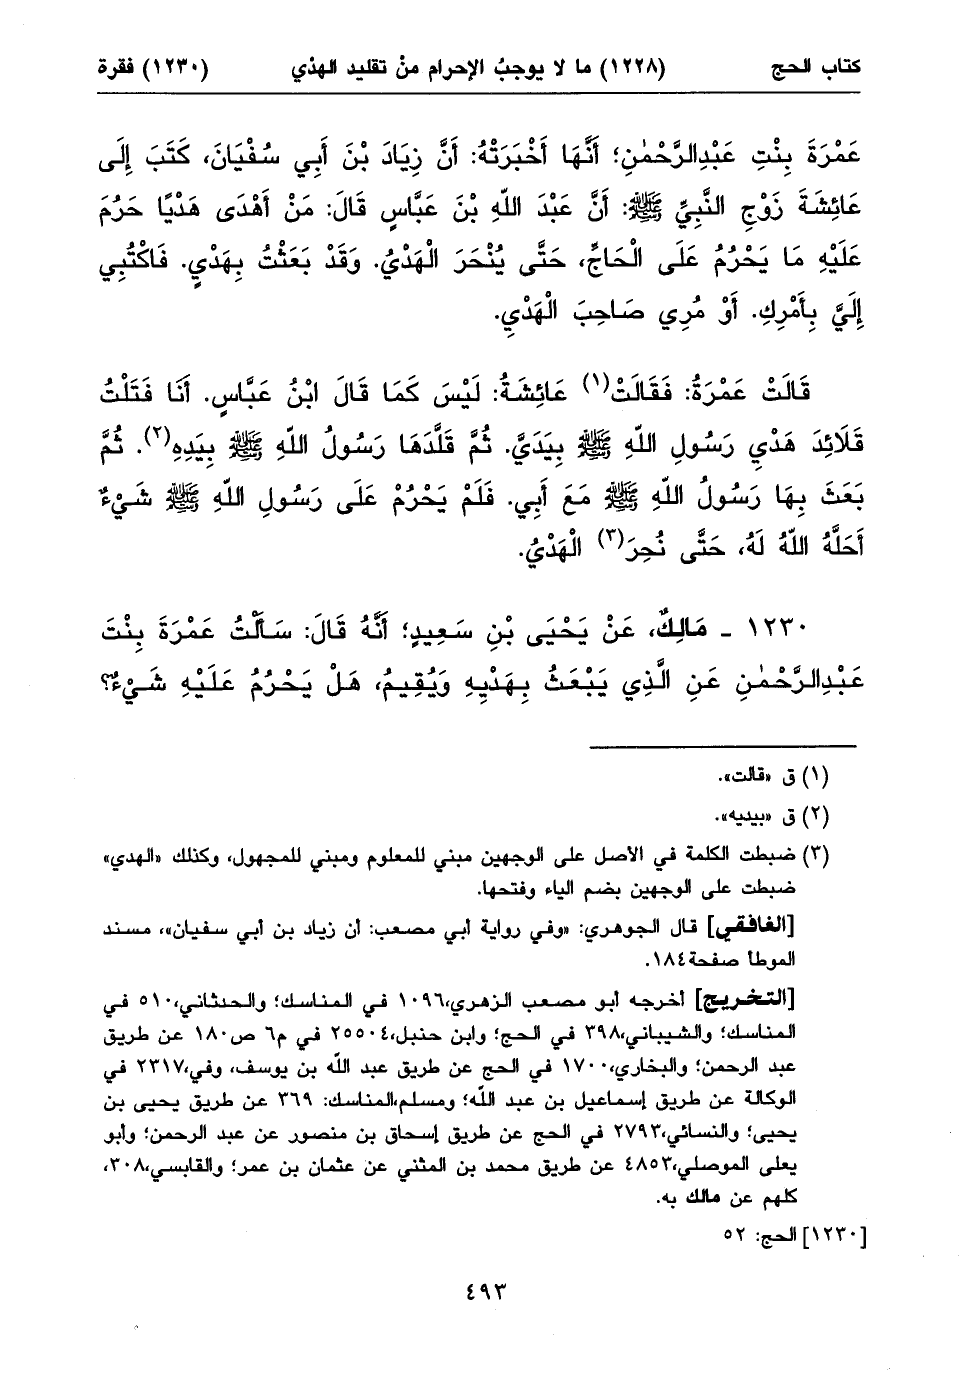 كتاب الحج (١٢٢٨) ما لا يوجبُ الإحرام منْ تقليد الهدْي (١٢٣٠) فقرة
عَمْرَةَ بِنْتِ عَبْدِالرَّحْمٰنِ؛ أَنَّهَا أَخْبَرَتْهُ: أَنَّ زِيَادَ بْنَ أَبِي سُفْيَانَ، كَتَبَ إِلَى
عَائِشَةَ زَوْجِ النَّبِيِّ ﷺ: أَنَّ عَبْدَ اللهِ بْنَ عَبَّاسٍ قَالَ: مَنْ أَهْدَى هَدْيًا حَرُمَ
عَلَيْهِ مَا يَحْرُمُ عَلَى الْحَاجِّ، حَتَّى يُنْحَرَ الْهَدْيُ. وَقَدْ بَعَثْتُ بِهَدْيٍ. فَاكْتُبِي
إِلَيَّ بِأَمْرِكِ. أَوْ مُرِي صَاحِبَ الْهَدْيِ.
قَالَتْ عَمْرَةُ: فَقَالَتْ(١) عَائِشَةُ: لَيْسَ كَمَا قَالَ ابْنُ عَبَّاسٍ. أَنَا فَتَلْتُ
قَلَائِدَ هَدْيِ رَسُولِ اللهِ ﷺ بِيَدَيَّ. ثُمَّ قَلَّدَهَا رَسُولُ اللهِ ﷺ بِيَدِهِ(٢). ثُمَّ
بَعَثَ بِهَا رَسُولُ اللهِ ﷺ مَعَ أَبِي. فَلَمْ يَحْرُمْ عَلَى رَسُولِ اللهِ ﷺ شَيْءٌ
أَحَلَّهُ اللهُ لَهُ، حَتَّى نُحِرَ(٣) الْهَدْيُ.
١٢٣٠ ـ مَالِكٌ، عَنْ يَحْيَى بْنِ سَعِيدٍ؛ أَنَّهُ قَالَ: سَأَلْتُ عَمْرَةَ بِنْتَ
عَبْدِالرَّحْمٰنِ عَنِ الَّذِي يَبْعَثُ بِهَدْيِهِ وَيُقِيمُ، هَلْ يَحْرُمُ عَلَيْهِ شَيْءٌ؟
(١) ق «قالت».
(٢) ق «بيديه».
(٣) ضبطت الكلمة في الأصل على الوجهين مبني للمعلوم ومبني للمجهول، وكذلك «الهدي»
ضبطت على الوجهين بضم الياء وفتحها.
[الغافقي] قال الجوهري: «وفي رواية أبي مصعب: أن زياد بن أبي سفيان»، مسند
الموطأ صفحة١٨٤.
[التخريج] أخرجه أبو مصعب الزهري،١٠٩٦ في المناسك؛ والحدثاني،٥١٠ في
المناسك؛ والشيباني،٣٩٨ في الحج؛ وابن حنبل،٢٥٥٠٤ في م٦ ص١٨٠ عن طريق
عبد الرحمن؛ والبخاري،١٧٠٠ في الحج عن طريق عبد الله بن يوسف، وفي،٢٣١٧ في
الوكالة عن طريق إسماعيل بن عبد الله؛ ومسلم،المناسك: ٣٦٩ عن طريق يحيى بن
يحيى؛ والنسائي،٢٧٩٣ في الحج عن طريق إسحاق بن منصور عن عبد الرحمن؛ وأبو
يعلى الموصلي،٤٨٥٣ عن طريق محمد بن المثني عن عثمان بن عمر؛ والقابسي،٣٠٨،
كلهم عن مالك به.
[١٢٣٠] الحج: ٥٢
٤٩٣